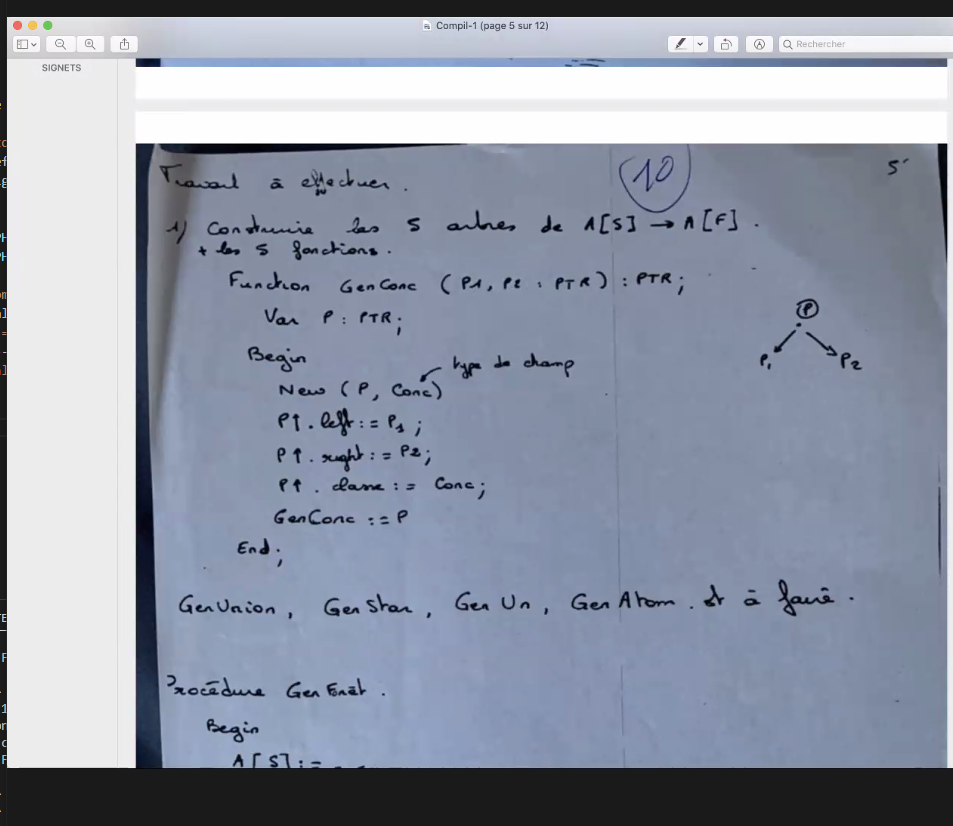 Compil-1 (page 5 sur 12)
Rechercher
SIGNETS
10
5
Travail à effectuer.
1) Construire les 5 arbres de A[S] → A[F].
+ les 5 fonctions.
Function GenConc (P1, P2 : PTR) : PTR;
Var P : PTR;
Begin
type de champ
New (P, Conc)
P↑. left := P1;
P↑. right := P2;
P↑. classe := Conc;
GenConc := P
End;
P
P1 P2
GenUnion, GenStar, GenUn, GenAtom. st à faire.
Procédure Gen
Begin
A[S] :=